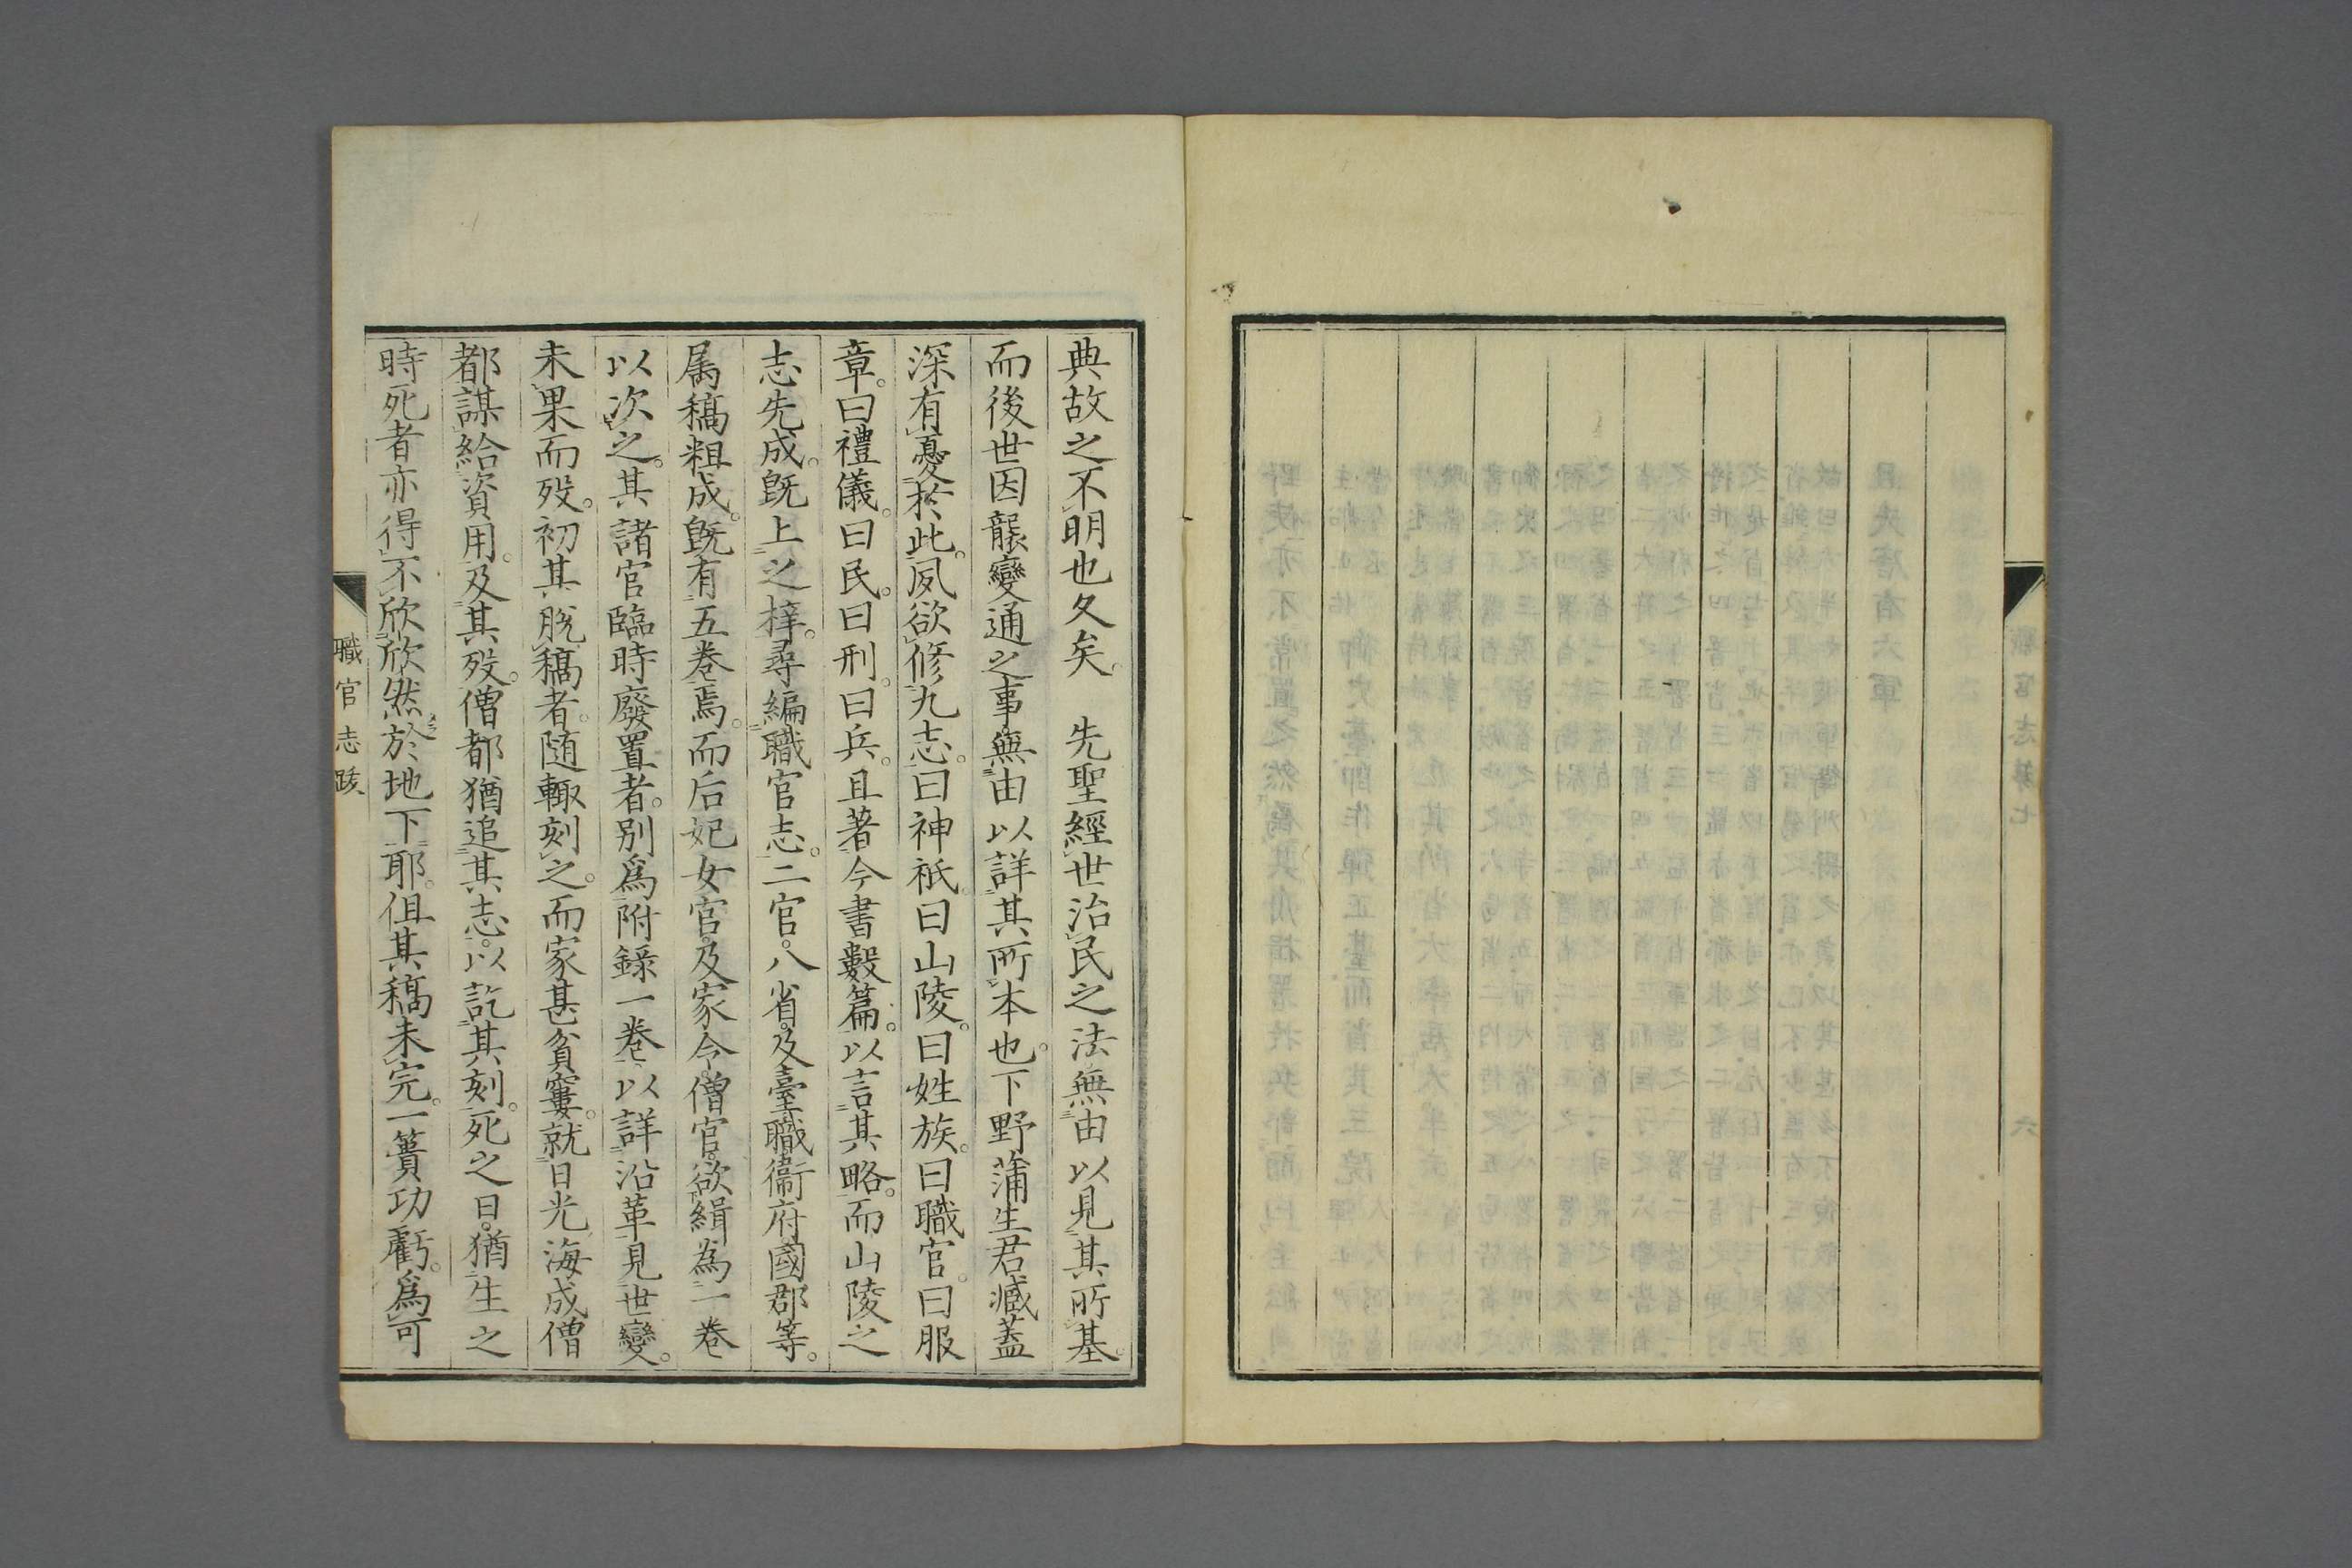 典故之不明也久矣。　先聖經世治民之法無由以見其所基。
而後世因襲變通之事無由以詳其所本也。下野蒲生君臧蓋
深有憂於此。夙欲修九志。曰神祇。曰山陵。曰姓族。曰職官。曰服
章。曰禮儀。曰民。曰刑。曰兵。且著今書數篇。以言其略。而山陵之
志先成。既上之梓。尋編職官志。二官。八省。及臺職衞府。國郡等。
属稿粗成。既有五巻焉。而后妃女官。及家令。僧官。欲緝為一巻
以次之。其諸官臨時廢置者。別爲附錄一巻以詳沿革見世變。
未果而歿。初其脱稿者。随輙刻之。而家甚貧窶。就日光海成僧
都謀給資用。及其歿。僧都猶追其志。以訖其刻。死之日。猶生之
時死者亦得不欣欣然於地下耶。但其稿未完。一簣功虧。爲可
職官志跋